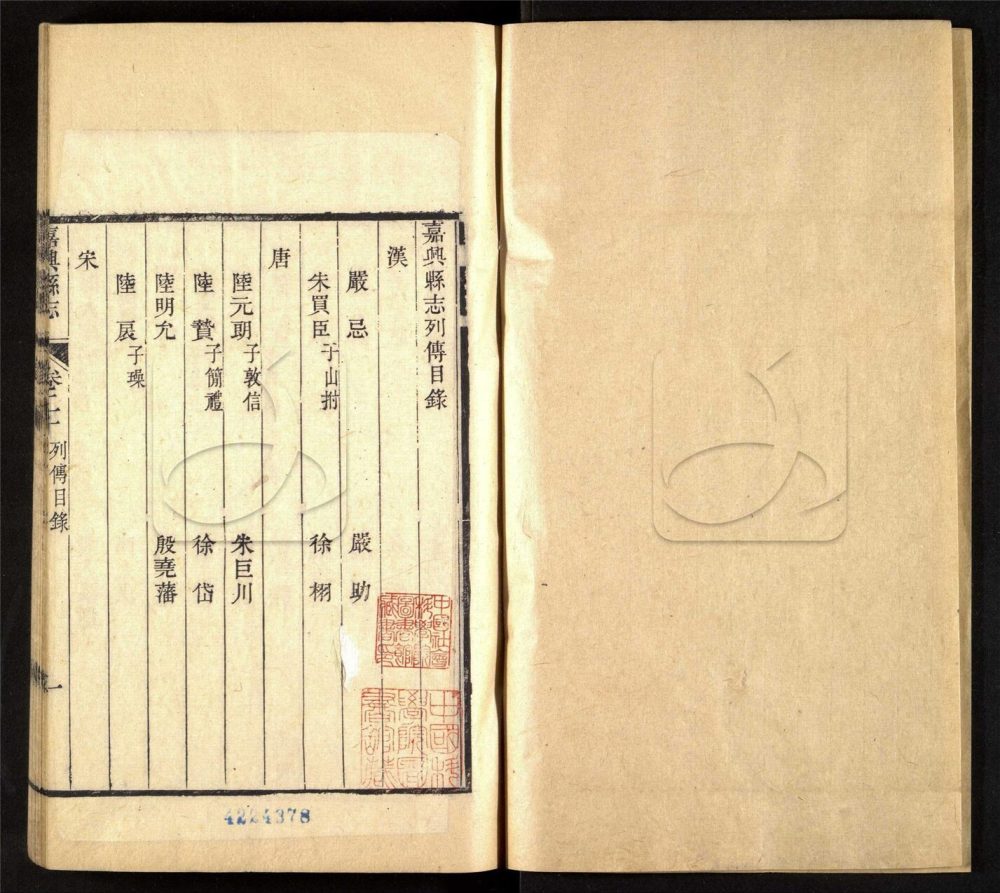 嘉興縣志列傳目錄
漢
嚴忌 嚴助
朱買臣子山拊 徐栩
唐
陸元朗子敦信 朱巨川
陸贄子簡禮 徐岱
陸明允 殷堯藩
陸扆子璪
宋
嘉興縣志
卷二十
列傳目錄
一
中國社會科學院圖書館藏書印
4224378